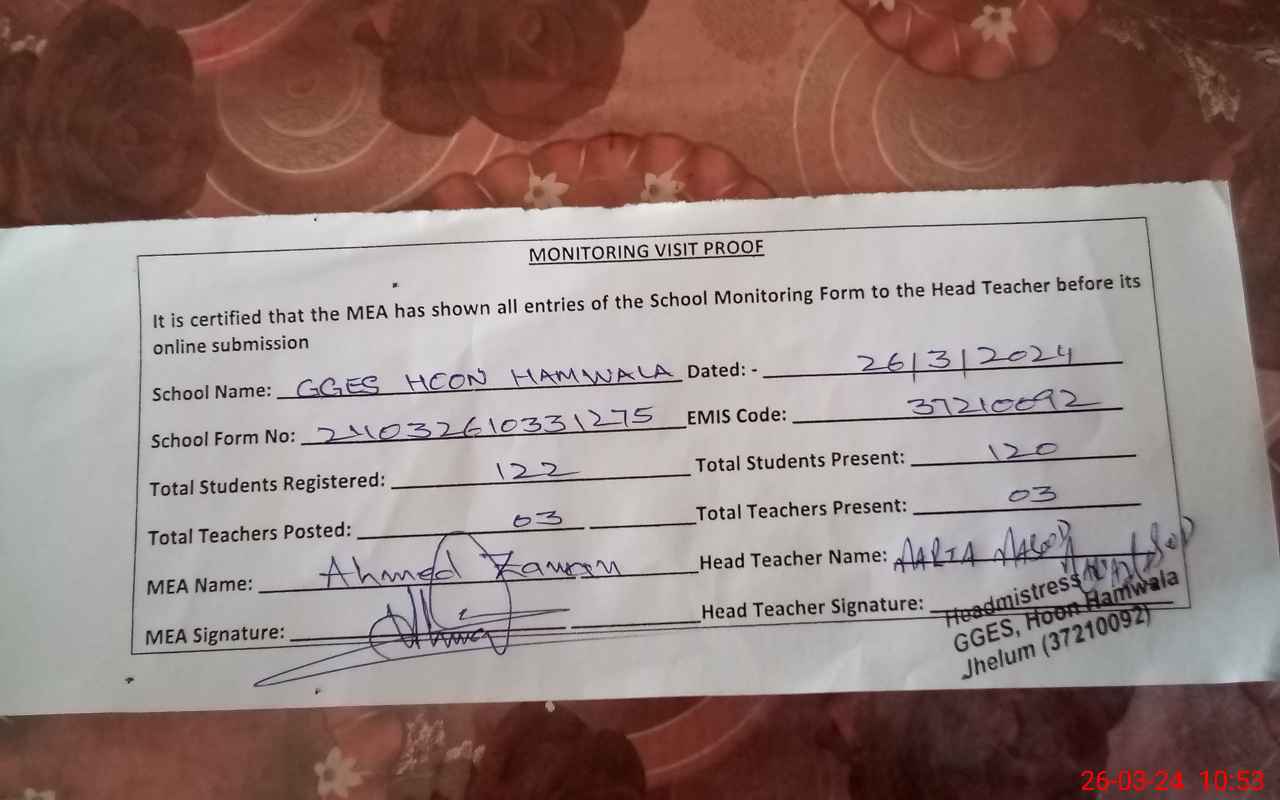 MONITORING VISIT PROOF
It is certified that the MEA has shown all entries of the School Monitoring Form to the Head Teacher before its
online submission
School Name: GGES HOON HAMWALA Dated: - 26/3/2024
School Form No: 24032610331275 EMIS Code: 37210092
Total Students Registered: 122 Total Students Present: 120
Total Teachers Posted: 03 Total Teachers Present: 03
MEA Name: Ahmed Head Teacher Name:
MEA Signature: Head Teacher Signature:
Headmistress
GGES, Hoon Hamwala
Jhelum (37210092)
26-03-24 10:53